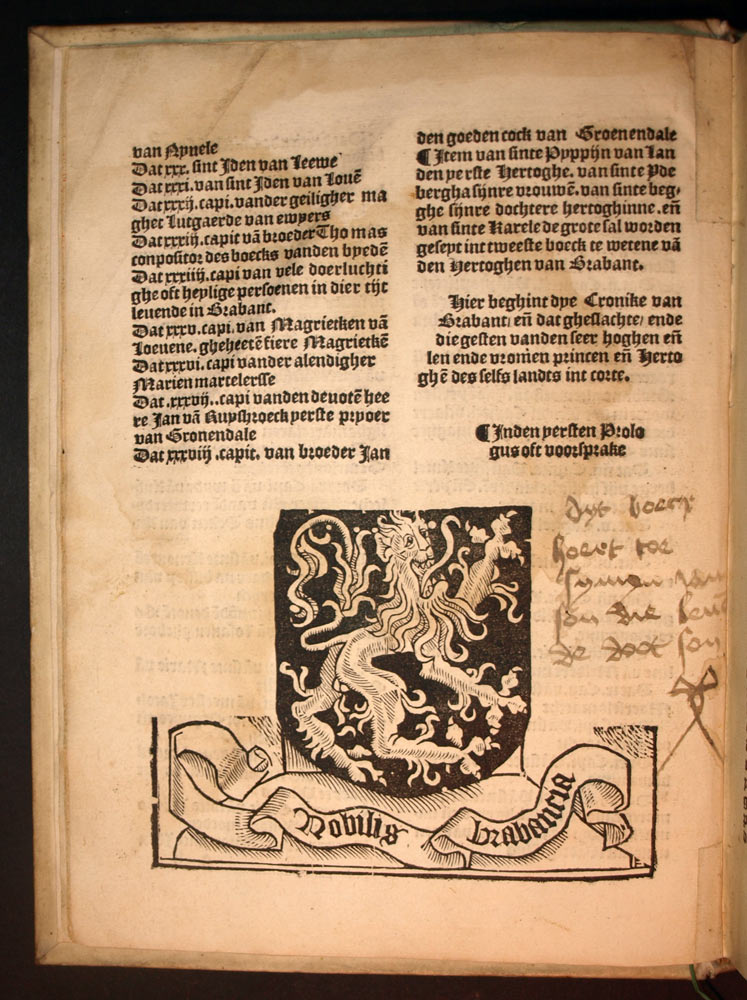 van Nyuele
Dat xxx. sint Iden van Leewe
Dat xxxi. van sint Iden van Louē
Dat xxxij. capi. vander geiligher ma
ghet Lutgaerde van ewyers
Dat xxxiij. capit vā broeder Tho mas
conpositor des boecks vanden byedē
Dat xxxiiij. capi van vele doerluchti
ghe oft heylige persoenen in dier tijt
leuende in Brabant.
Dat xxxv. capi. van Magrietken vā
Loeuene. gheheetē fiere Magrietkē
Dat xxxvi. capi vander alendigher
Marien martelersse
Dat .xxxvij. .capi vanden deuotē hee
re Jan vā Ruysbroeck yerste pryoer
van Gronendale
Dat xxxviij .capit. van broeder Jan
den goeden cock van Groenendale
¶ Item van sinte Pyppijn van Lan
den yerste Hertoghe. van sinte Yde
bergha sijnre vrouwē. van sinte beg-
ghe sijnre dochtere hertoghinne. eñ
van sinte Karele de grote sal worden
geseyt int tweeste boeck te wetene vā
den Hertoghen van Brabant.
Hier beghint dye Cronike van
Brabant/ eñ dat gheslachte/ ende
die gesten vanden seer hoghen eñ
len ende vromen princen eñ Herto
ghē des selfs landts int corte.
¶ Inden yersten Prolo
gus oft voorsprake
dyt boeck
hoert toe
symon van
son die
de son
Nobilis brabancia